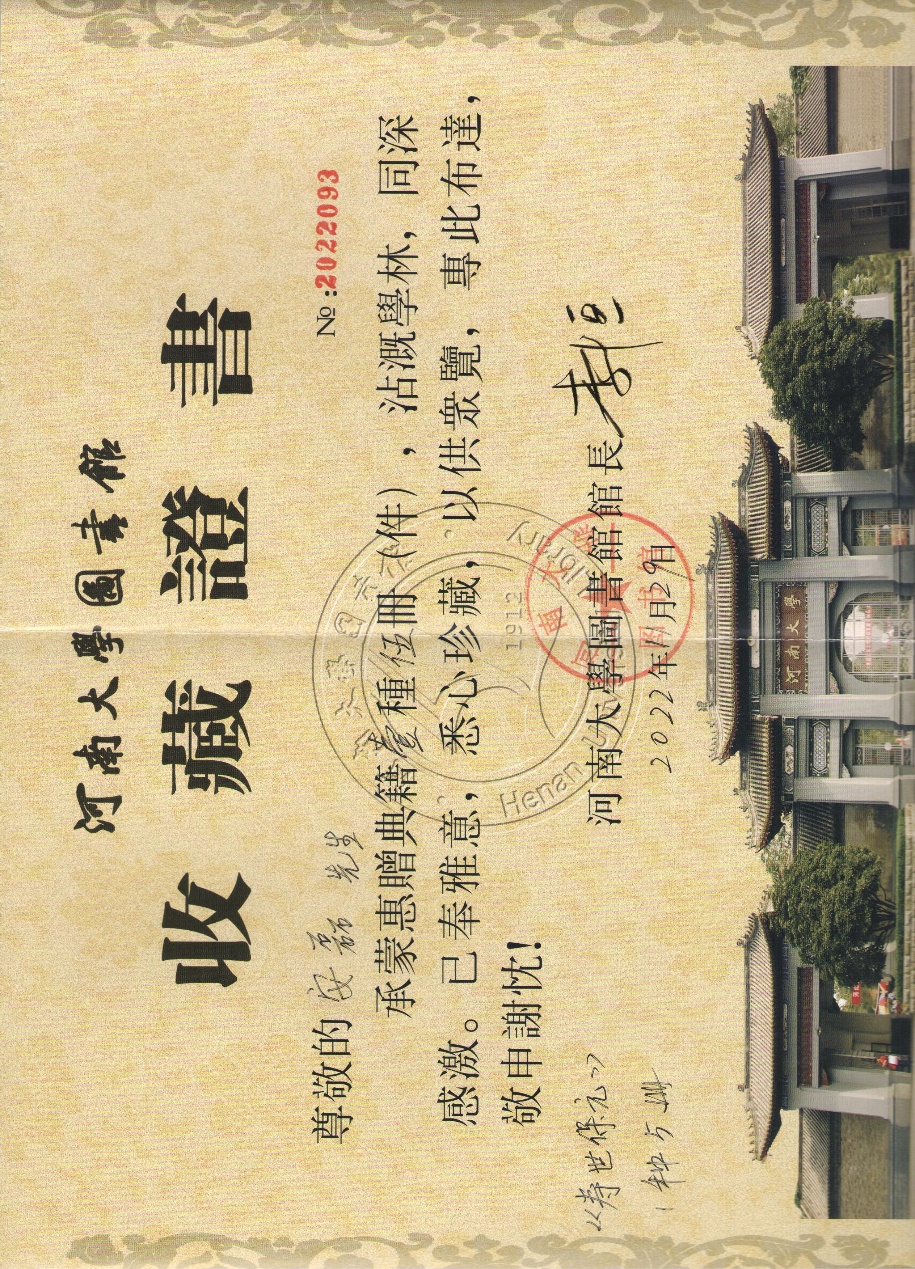 河南大學圖書館
收藏證書
№:2022093
尊敬的 安磊 先生
承蒙惠贈典籍壹種伍冊(件),沾溉學林,同深
感激。已奉雅意,悉心珍藏,以供衆覽,專此布達,
敬申謝忱!
河南大學圖書館館長
2022年11月29日
《寿世保元》
1种5册
1912
Henan
Library
河南大學